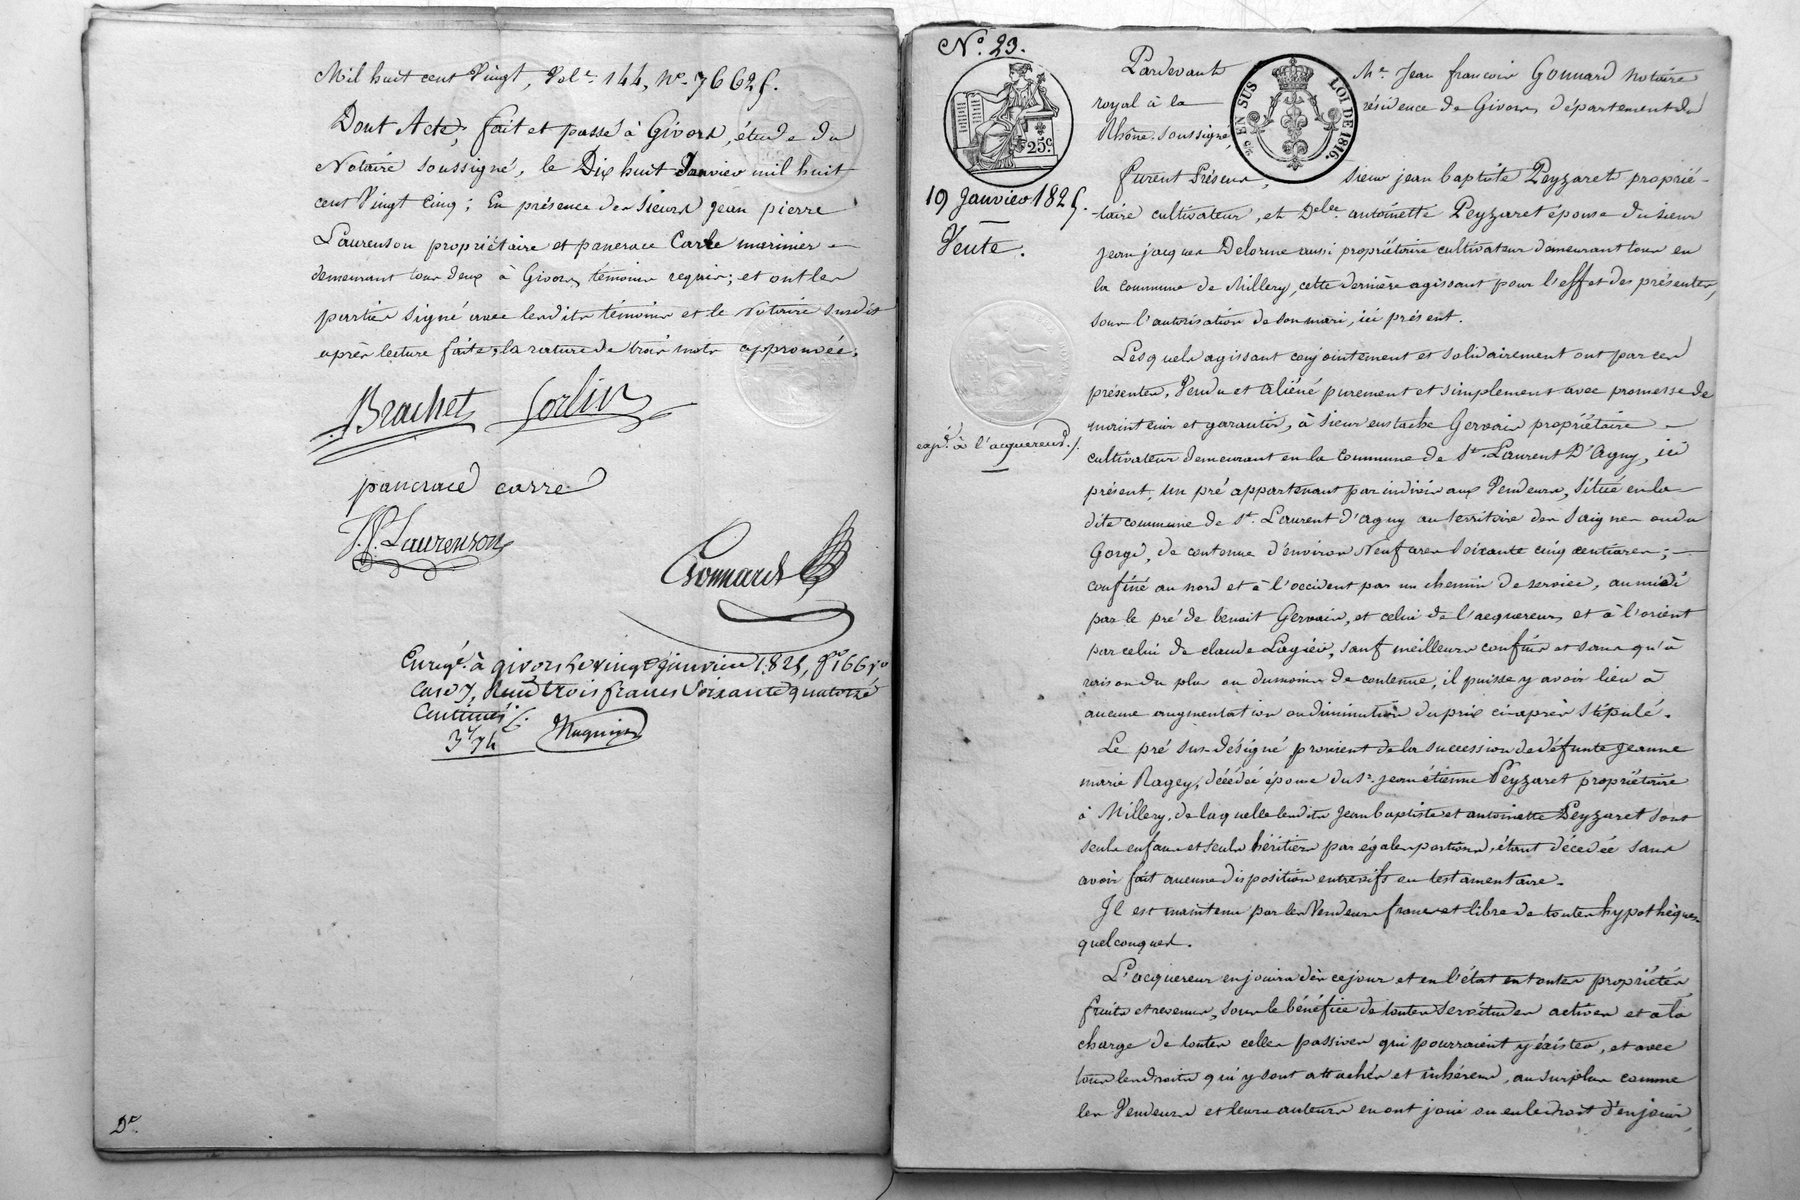 Mil huit cent Vingt, Vol.e 144, N.o 76625.
Dont Acte, fait et passé à Givors, étude du
Notaire soussigné, le Dix huit Janvier mil huit
cent Vingt Cinq; En présence des Sieurs jean pierre
Laurenson propriétaire et pancrace Carle marinier
demeurant tous deux à Givors, témoins requis; et ont les
parties signé avec lesdits témoins et le Notaire susdit
après lecture faite, la rature de trois mots approuvée.
Brachet Sorlin
pancrace carre
J.P. Laurenson
Gonnard
Enregé. à givors le vingt janvier 1825, f.o 166 v.o
Case 7, Reçu trois francs Soixante quatorze
Centimes
3f 74
D.r
N.o 23.
25c.
2/10 EN SUS LOI DE 1816.
19 Janvier 1825.
Vente.
expé. à l'acquereur.
Pardevant M.e Jean francois Gonnard Notaire
royal à la résidence de Givors département du
Rhône soussigné,
furent Présens, sieur jean baptiste Peyzaret proprié-
-taire cultivateur, et Delle. antoinette Peyzaret épouse du sieur
jean jacques Delorme aussi propriétaire cultivateur demeurant tous en
la commune de Millery, cette dernière agissant pour l'effet des présentes,
sous l'autorisation de son mari, ici présent.
Lesquels agissant conjointement et solidairement ont par ces
présentes, Vendu et aliéné purement et simplement avec promesse de
maintenir et garantir, à sieur eustache Gervais propriétaire
cultivateur demeurant en la Commune de St. Laurent D'Agny, ici
présent, un pré appartenant par indivis aux Vendeurs, situé en la
dite commune de St. Laurent d'agny au territoire des Saignes ou du
Gorge, de contenue d'environ Neuf ares soixante cinq centiares;
confiné au nord et à l'occident par un chemin de service, au midi
par le pré de benoit Gervais, et celui de l'acquereur, et à l'orient
par celui de claude Lagier, sauf meilleurs confins et sans qu'à
raison du plus ou du moins de contenue, il puisse y avoir lieu à
aucune augmentation ou diminution du prix ci-après stipulé.
Le pré sus-désigné provient de la succession de défunte Jeanne
marie Ragey, décédée épouse du Sr. jean étienne Peyzaret propriétaire
à Millery, de laquelle lesdits Jean baptiste et antoinette Peyzaret sont
seuls enfans et seuls héritiers par égales portions, étant décédée sans
avoir fait aucune disposition entrevifs ou testamentaire.
Il est maintenu par les Vendeurs franc et libre de toutes hypothèques
quelconques.
L'acquereur en jouira dès ce jour et en l'état en toutes propriétés,
fruits et revenus, sous le bénéfice de toutes servitudes actives et à la
charge de toutes celles passives qui pourraient y exister, et avec
tous les droits qui y sont attachés et inhérens, au surplus comme
les Vendeurs et leurs auteurs en ont joui ou eu le droit d'en jouir